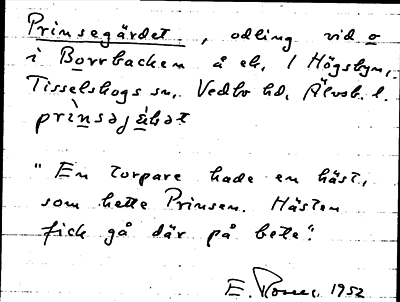 Prinsegärdet, odling vid o
i Borrbacken å ek. 1 Högsbyn,
Tisselskogs sn, Vedbo hd, Älvsb. l.
"En torpare hade en häst,
som hette Prinsen. Hästen
fick gå där på bete".
E. 1952